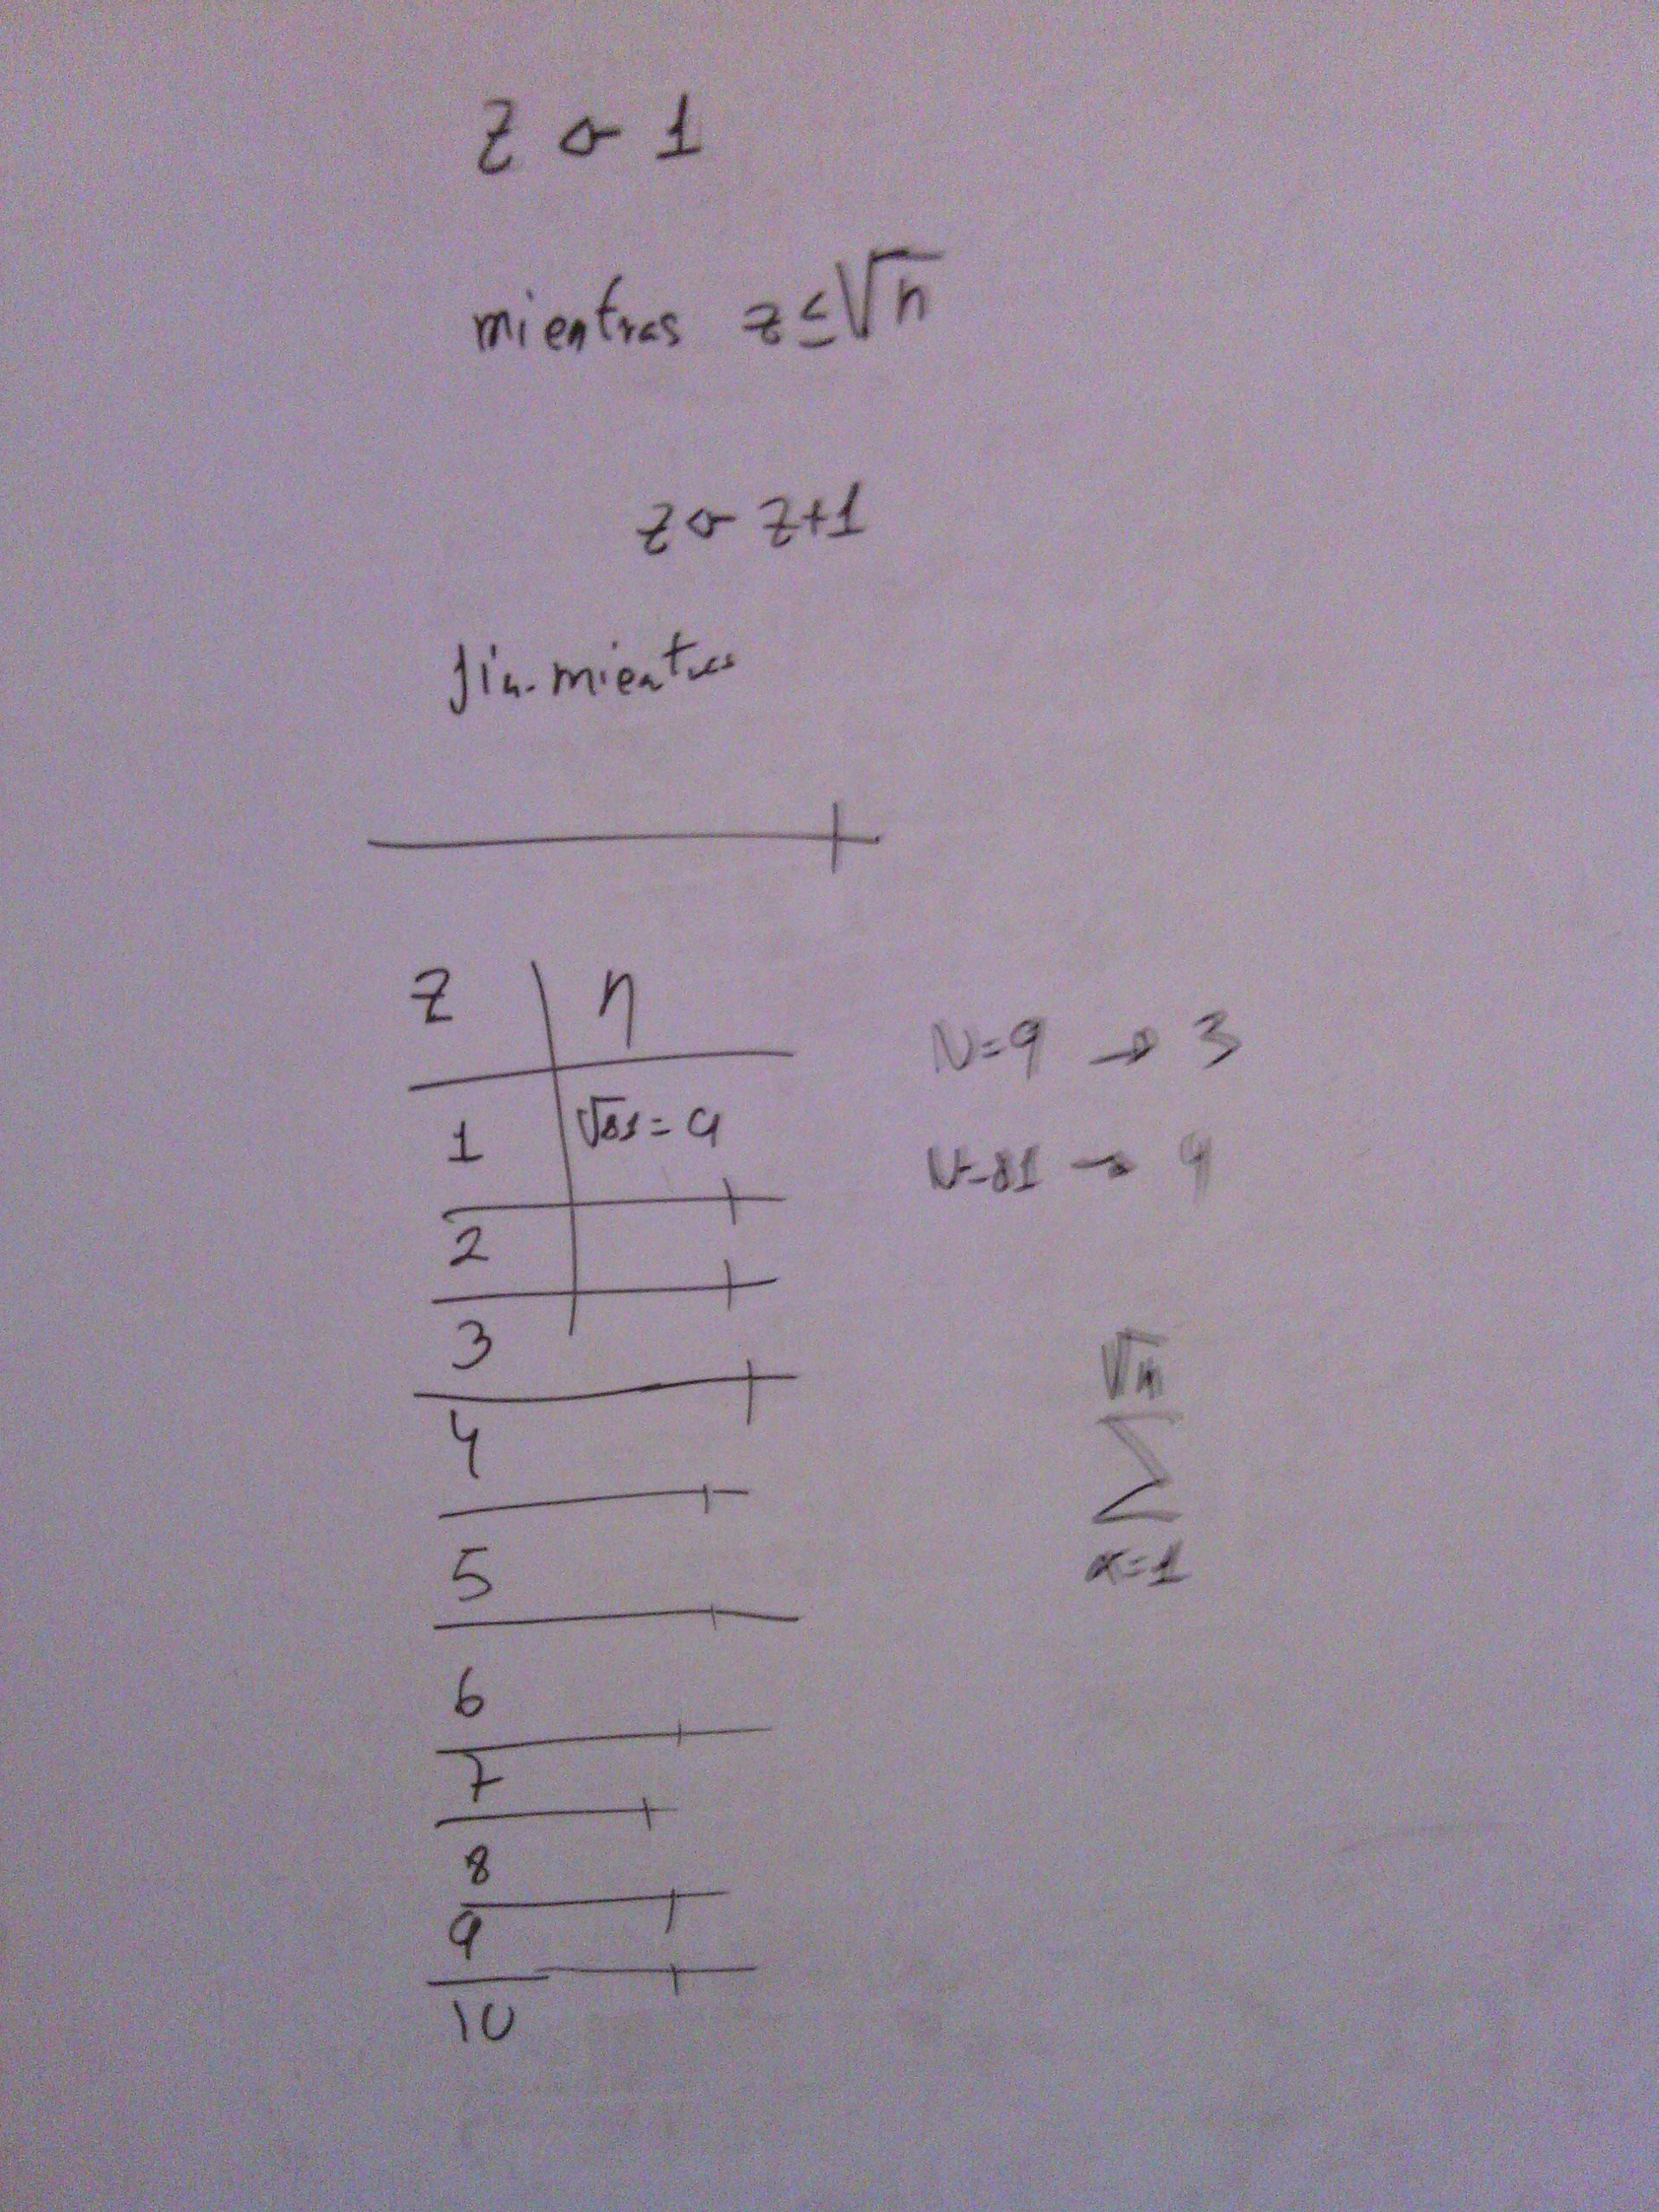 z ← 1
mientras z ≤ √n
z ← z+1
fin-mientras
z n
1 √81 = 9
2
3
4
5
6
7
8
9
10
N=9 → 3
N=81 → 9
√n
∑
x=1